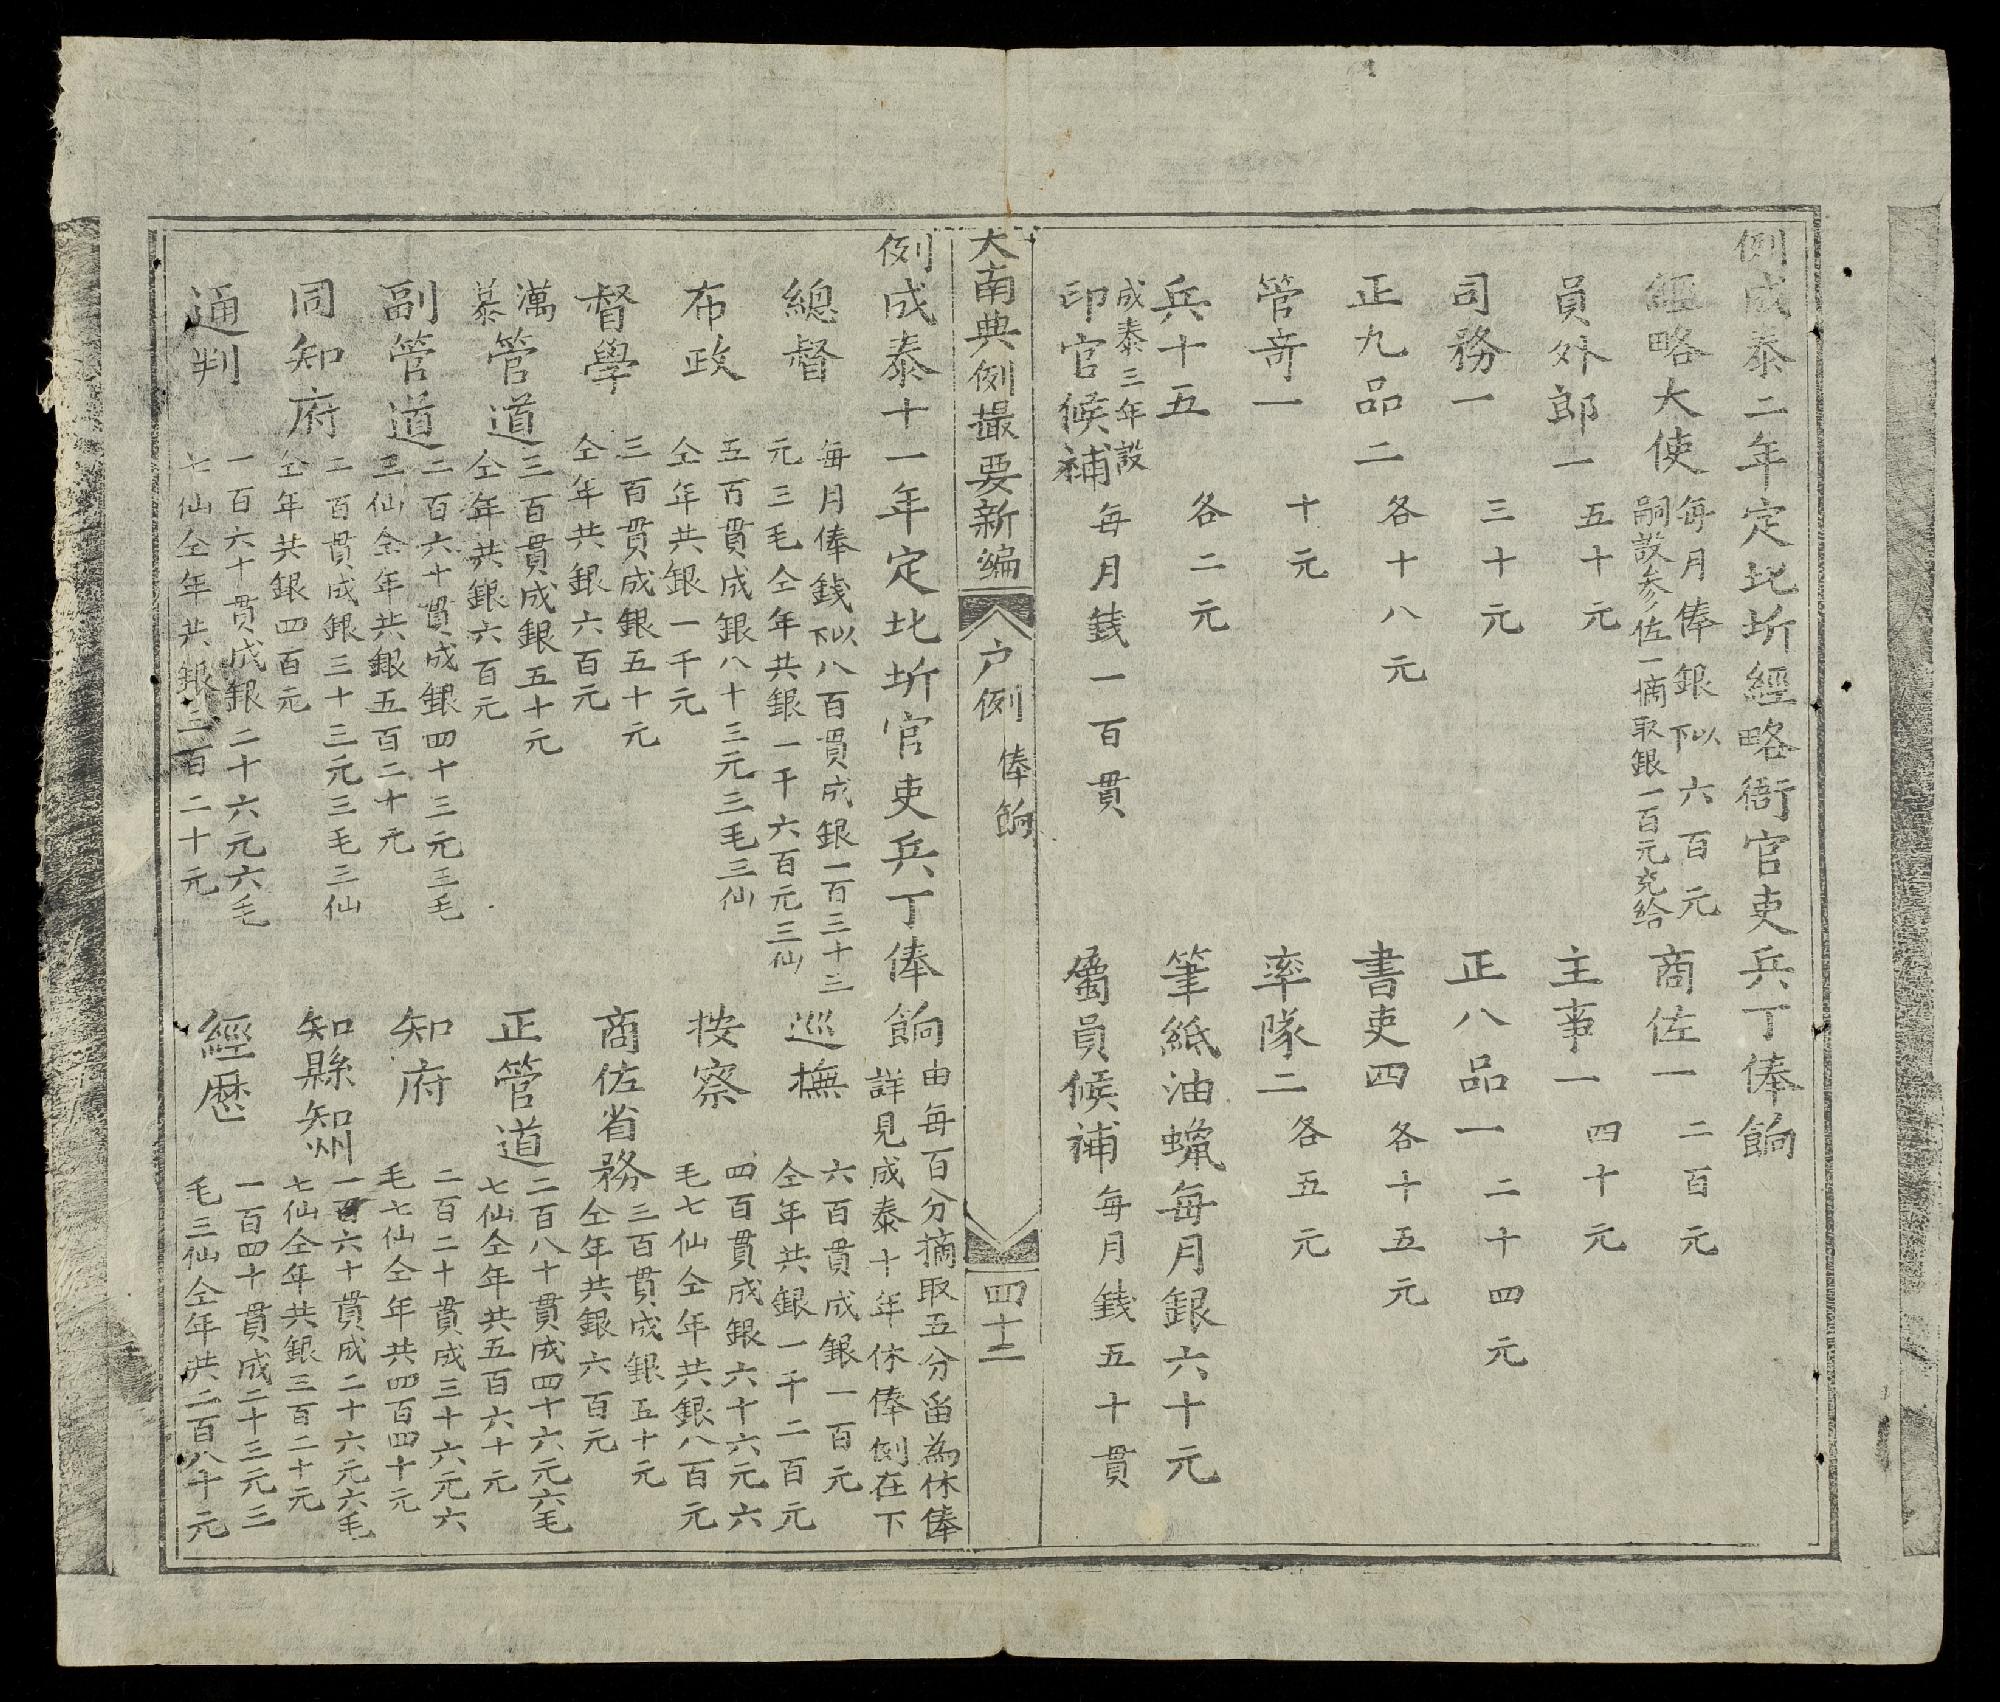 例成泰二年定北圻經略衙官吏兵丁俸餉
經略大使 每月俸銀下以六百元
嗣設參佐一摘取銀一百元充給
商佐一 二百元
員外郎一 五十元
主事一 四十元
司務一 三十元
正八品一 二十四元
正九品二 各十八元
書吏四 各十五元
管奇一 十元
率隊二 各五元
兵十五 各二元
筆紙油蠟每月銀六十元
成泰三年設
印官候補 每月錢一百貫
屬員候補 每月錢五十貫
大南典例撮要新編
户例 俸餉
四十二
例成泰十一年定北圻官吏兵丁俸餉 由每百分摘取五分留為休俸
詳見成泰十年休俸例在下
總督 每月俸錢下以八百貫成銀一百三十三
元三毛仝年共銀一千六百元三仙
巡撫 六百貫成銀一百元
仝年共銀一千二百元
布政 五百貫成銀八十三元三毛三仙
仝年共銀一千元
按察 四百貫成銀六十六元六
毛七仙仝年共銀八百元
督學 三百貫成銀五十元
仝年共銀六百元
商佐省務 三百貫成銀五十元
仝年共銀六百元
漢募管道 三百貫成銀五十元
仝年共銀六百元
正管道 二百八十貫成四十六元六毛
七仙仝年共五百六十元
副管道 二百六十貫成銀四十三元三毛
三仙仝年共銀五百二十元
知府 二百二十貫成三十六元六
毛七仙仝年共四百四十元
同知府 二百貫成銀三十三元三毛三仙
仝年共銀四百元
知縣知州 一百六十貫成二十六元六毛
七仙仝年共銀三百二十元
通判 一百六十貫成銀二十六元六毛
七仙仝年共銀三百二十元
經歷 一百四十貫成二十三元三
毛三仙仝年共二百八十元